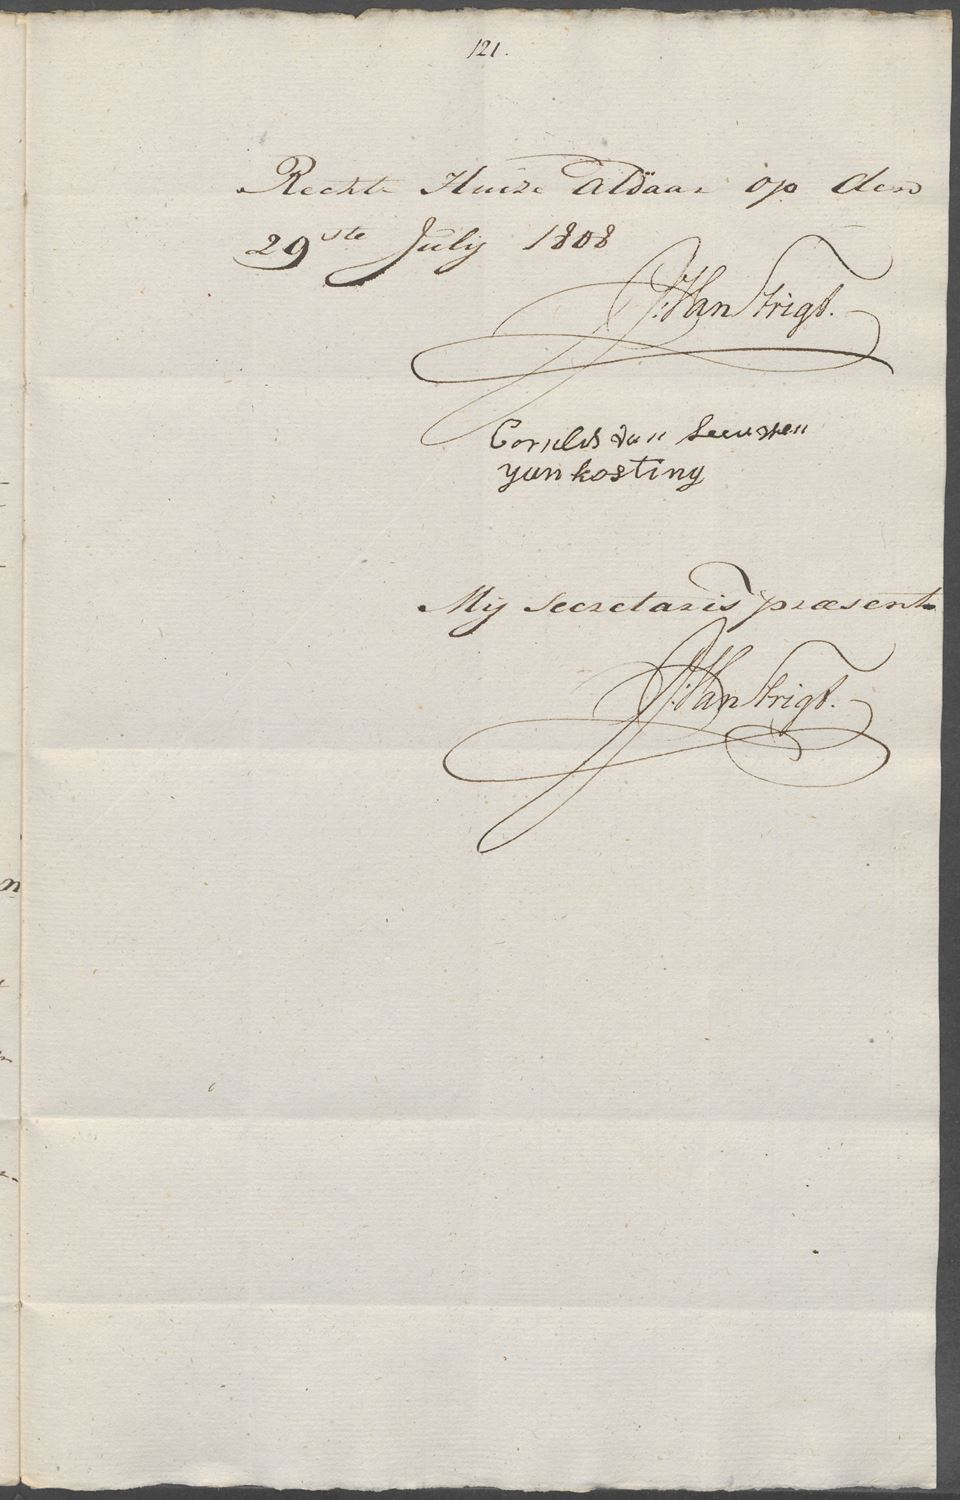 121.
Rechte Huize aldaar op den
29ste July 1808
J: Van Strigt.
Cornelis van Leeuwen
yan kosting
My secretaris præsent
J: Van Strigt.